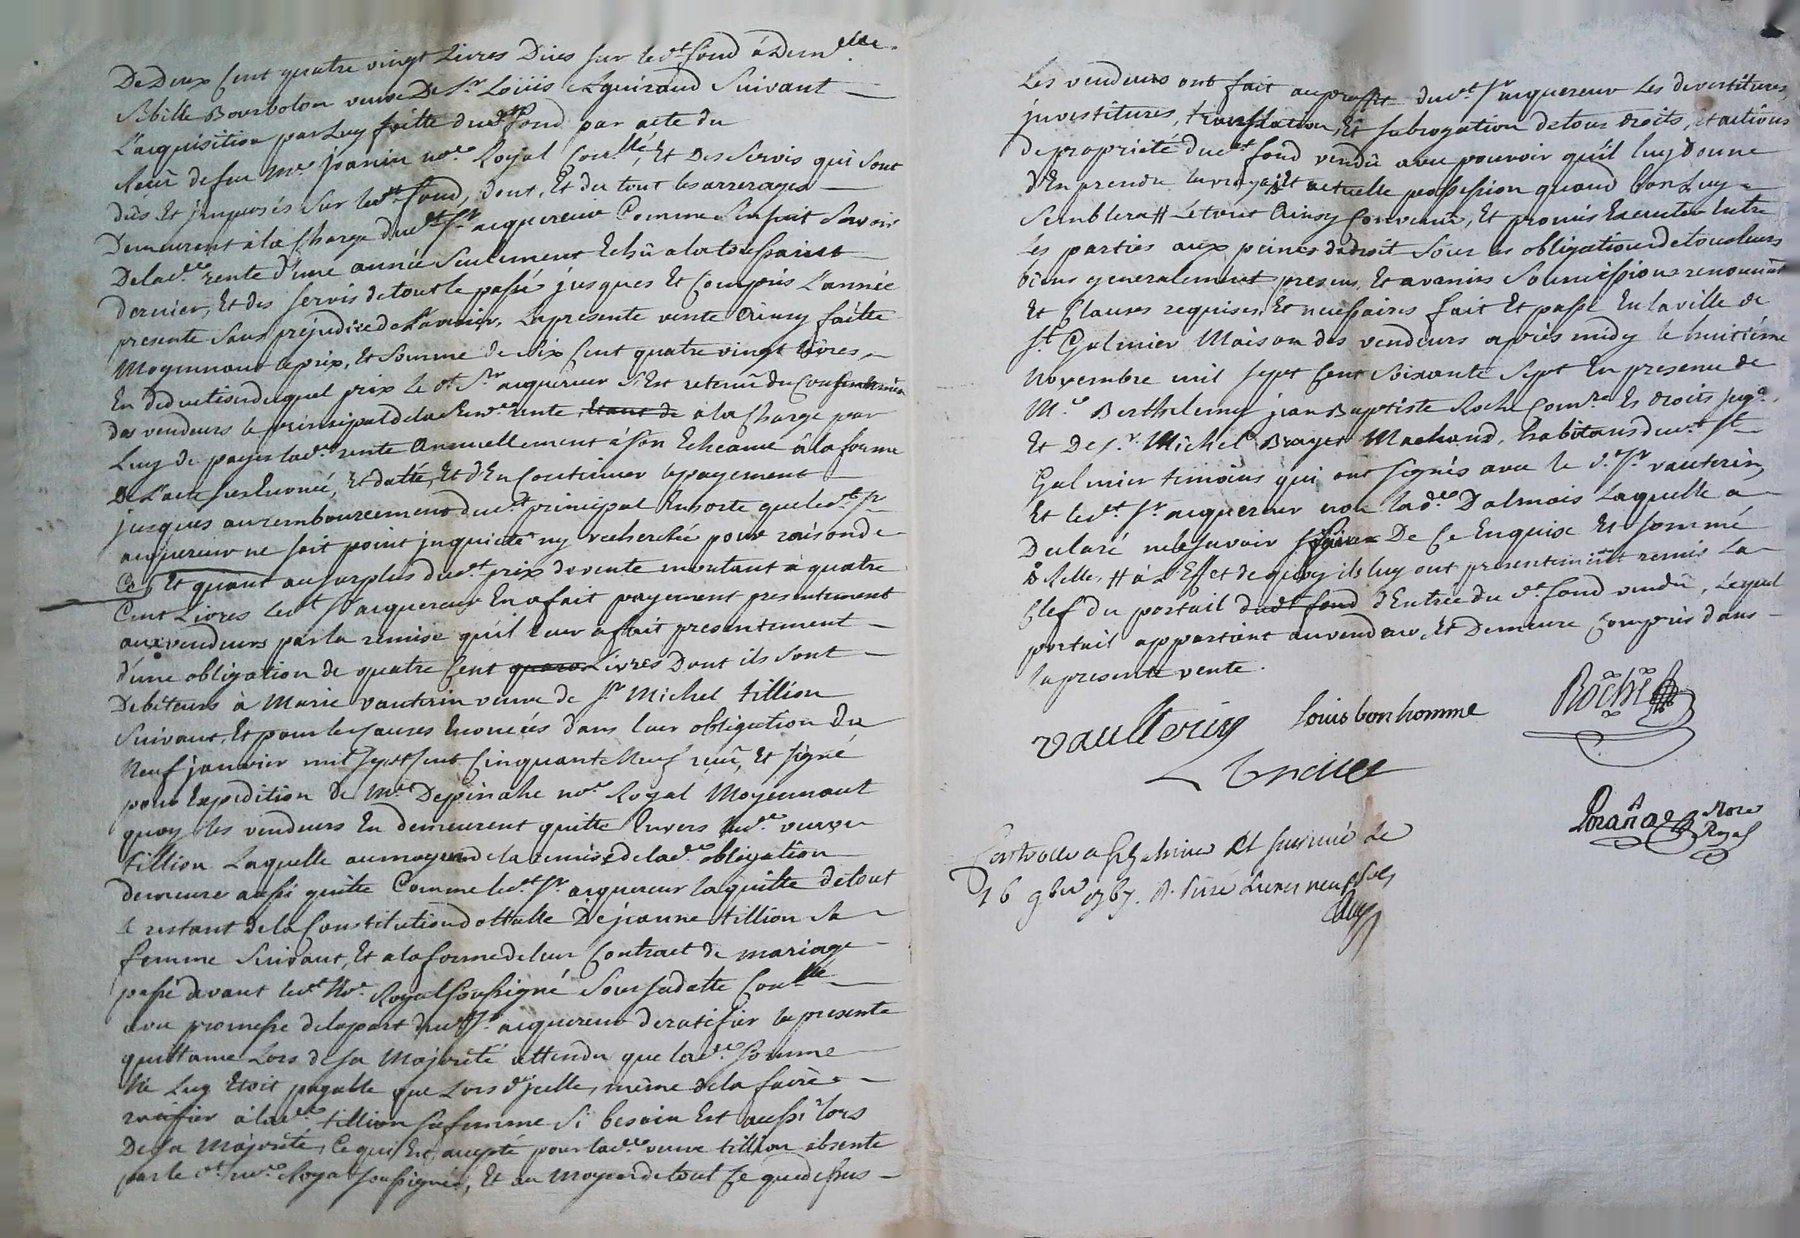 De Deux Cent quatre vingt Livres Dües sur led.t fond à Dem.elle
Sibille Bourboton veuve De S.r Louis Aguiraud Suivant
L'acquisition par Luy faitte dud.t fond par acte du
Recû de feu M.e Joanin no.re Royal Con.llé, Et Des Servis qui sont
dûs Et jmposés sur led.t fond, dont, Et du tout les arrerages
Demeurent à la Charge dud.t S.r acquereur Comme Sensuit Savoir
De lad.e rente d'une année Seulement Echû a la toussaint
dernier, Et des servis de tout le passé jusques Et Compris L'année
presente sans préjudice de Lavenir, La presente vente Ainsy faitte
Moyennant le prix, Et Somme de Six Cent quatre vingt Livres,
En déduction duquel prix le d.t S.r acquereur S'Est retenû du Consentement
des vendeurs le principal de lad. rente Etant de à la Charge par
Luy de payer lad.e rente Annuellement à son Echeance à la forme
De L'acte sus Enoncé, Et datté, Et d'En Continuer le payement
jusques au remboursement dud.t principal En sorte que led.t S.r
acquereur ne soit point jnquieté ny recherché pour raison de
Ce, Et quant au surplus dud.t prix de vente montant à quatre
Cent Livres led.t S.r acquereur En a fait payement presentement
aux vendeurs par la remise qu'il leur a fait presentement
d'une obligation de quatre Cent Livres Dont ils sont
Debiteurs à Marie vauterin veuve de S.r Michel tillion
Suivant, Et pour les causes Enoncées dans leur obligation du
Neuf janvier mil sept cent Cinquante Neuf reçû, Et signé
pour Expedition De M.e Depinahe no.re Royal Moyennant
quoy les vendeurs En demeurent quitte Envers lad.e veuve
tillion Laquelle au moyen de la remise de lad.e obligation
demeure aussi quitte Comme led.t S.r acquereur la quitte de tout
le restant de la Constitution dottalle De jeanne tillion sa
femme Suivant, Et a la forme de leur Contrat de mariage
passé devant led.t No.re Royal soussigné Sous sa datte Con.llé
avec promesse de la part dud.t S.r acquereur de ratifier la presente
quittance Lors de sa Majorité attendu que lad.e somme
Ne Luy Etoit payable que Lors d'jcelle, même de la faire
ratifier à lad.e tillion sa femme Si besoin Est aussi lors
De sa Majorité, Ce qui Est accepté pour lad.e veuve tillion absente
par le d.t no.re Royal soussigné, Et au Moyen de tout Ce que dessus
Les vendeurs ont fait au proffit dud.t S.r acquereur Les devestitures,
jnvestitures, translation, Et subrogation de tous droits, Et actions
de propriété dud.t fond vendû avec pouvoir qu'il luy donne
d'En prendre la vraye, Et actuelle possession quand bon Luy
Semblera # Le tout Ainsy Convenu, Et promis Executer Entre
les parties aux peines de droit Sous les obligations de tous leurs
biens generalement presens, Et avenirs Soumissions renonciat.
Et Clauses requises, Et necessaires fait Et passé En la ville de
S.t Galmier Maison des vendeurs après midy le huitième
Novembre mil sept Cent Soixante Sept En presence de
M.e Berthelemy jean Baptiste Roche Com.re Es droits seig.x
Et De S.r Michel Brayet Machand, habitans dud.t S.t
Galmier temoins qui ont signés avec le d. S.r vauterin,
Et led.t S.r acquereur non lad.e Dalmais Laquelle a
Declaré ne sçavoir signer De Ce Enquise Et sommé
D'Elle, # à L'Effet de quoy ils luy ont presentement remis La
Clef du portail dud.t fond d'Entrée du d.t fond vendu, Lequel
portail appartient au vendeur, Et Demeure Compris dans
la presente vente.
vaulterin louis bonhomme Roche
Pranac No.re Royal
Controllé a S.t Galmier Et insinué Le
16 9bre 1767. R. Livres neuf sols